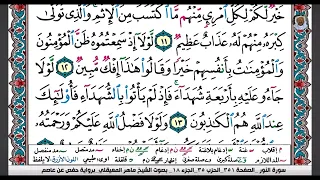 خَيْرٌ لَّكُمْ لِكُلِّ امْرِئٍ مِّنْهُم مَّا اكْتَسَبَ مِنَ الْإِثْمِ وَالَّذِي تَوَلَّىٰ
كِبْرَهُ مِنْهُمْ لَهُ عَذَابٌ عَظِيمٌ ١١ لَّوْلَا إِذْ سَمِعْتُمُوهُ ظَنَّ الْمُؤْمِنُونَ
وَالْمُؤْمِنَاتُ بِأَنفُسِهِمْ خَيْرًا وَقَالُوا هَٰذَا إِفْكٌ مُّبِينٌ ١٢ لَّوْلَا
جَاءُو عَلَيْهِ بِأَرْبَعَةِ شُهَدَاءَ فَإِذْ لَمْ يَأْتُوا بِالشُّهَدَاءِ فَأُولَٰئِكَ
عِندَ اللَّهِ هُمُ الْكَاذِبُونَ ١٣ وَلَوْلَا فَضْلُ اللَّهِ عَلَيْكُمْ وَرَحْمَتُهُ
سورة النور الصفحة ٣٥١ الجزء ١٨ بصوت الشيخ ماهر المعيقلي برواية حفص عن عاصم